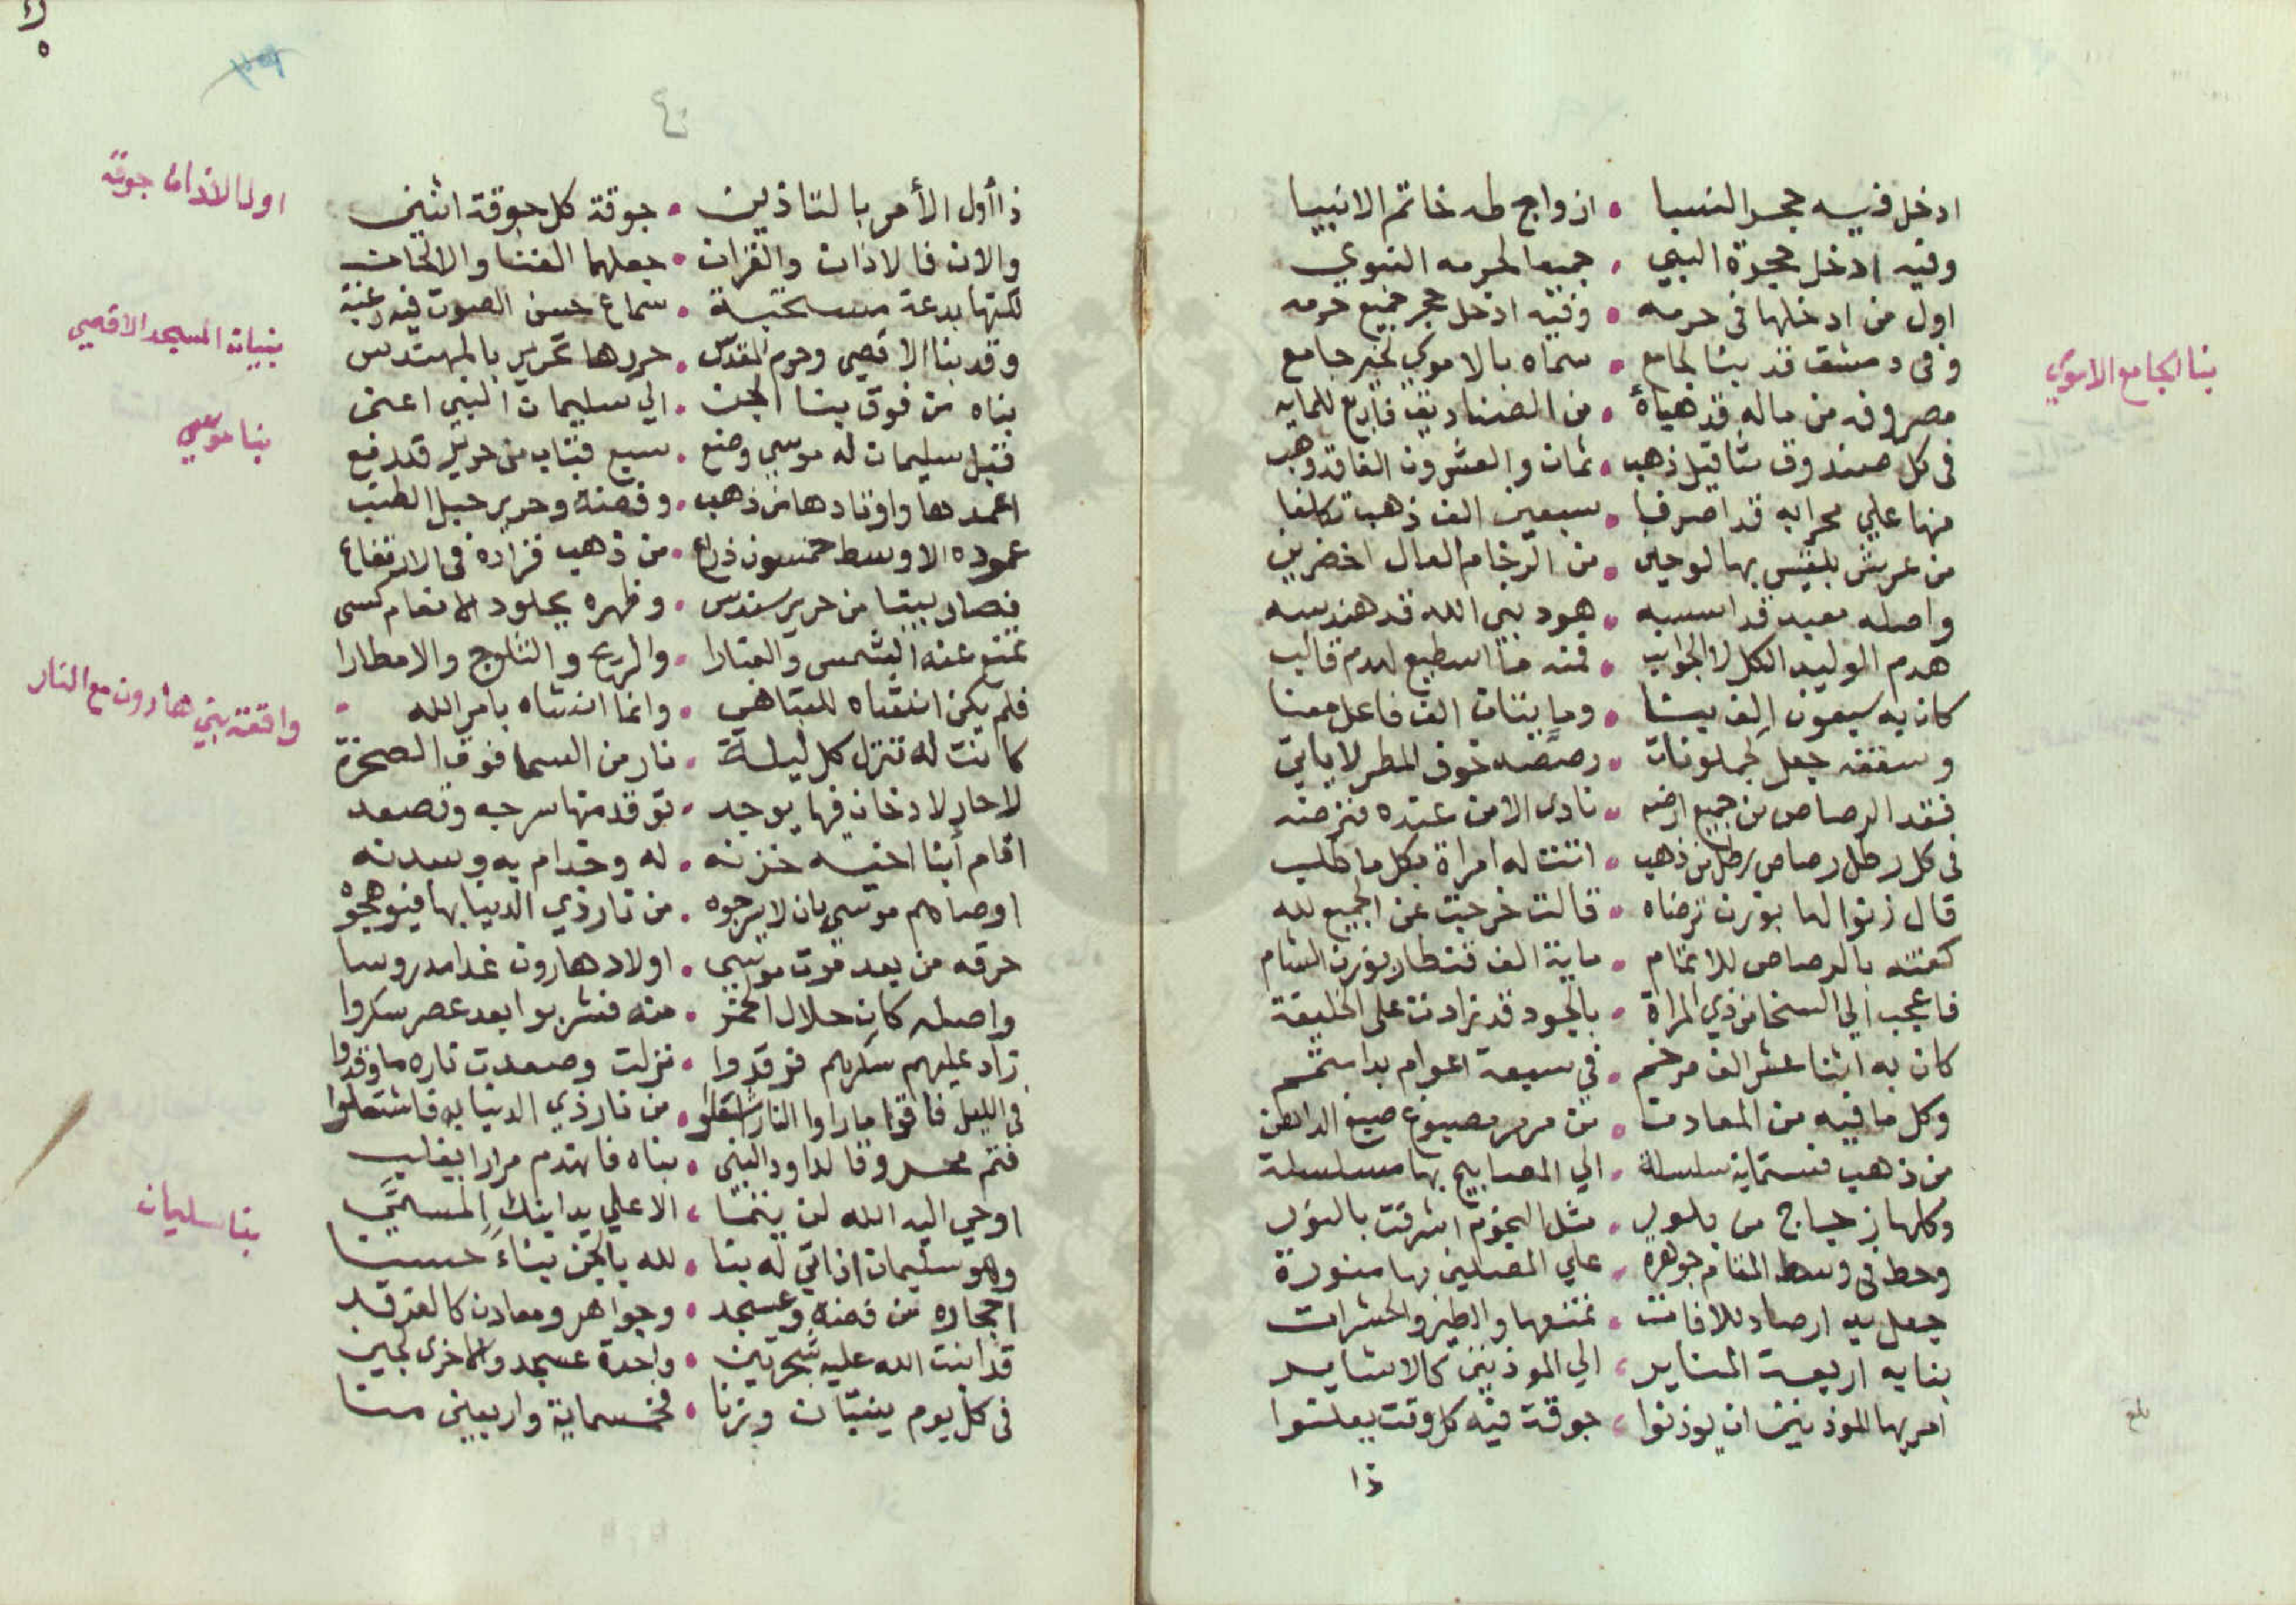 ادخل فيه حجر النسا • ازواج طه خاتم الانبيا
وفيه ادخل حجرة النبي • جميع الحرمه النبوي
اول من ادخلها فى حرمه • وفيه ادخل حجر جميع حرمه
وفى دمشق قد بنا لجامع • سماه بالاموي لخير جامع
بنا لجامع الاموي
مصروفه من ماله قد هيأه • من الصناديق فاربع للمايه
فى كل صندوق مثاقيل ذهب • ثمان والعشرون الفا قد وهب
منها علي محرابه قد اصرفا • سبعين الف ذهب تكلفا
من عرش بلقيس بها لوحين • من الرخام العال اخضرين
واصله معبد قد اسسه • هود نبي الله قد هندسه
هدم الوليد الكل لا الجوانب • فمنه ما اسطيع لهدم قالب
كان به سبعون الف بيشا • وما بنات الف فاعل معنا
وسقفه جعل لجملونات • رصصه خوف المطر لا ياتي
ففقد الرصاص من جميع ارضه • نادى الامن عنده فنرضه
فى كل رطل رصاص رطل من ذهب • اتت له امراة بكل ما طلب
قال زنوا لها بوزن ترضاه • قالت خرجت عن الجميع لله
كفته بالرصاص للاتمام • ماية الف قنطار بوزن الشام
فاعجب الي السخا من ذي المراة • بالجود قد زادت على الخليفة
كان به اثنا عشر الف مرخم • في سبعة اعوام بدا ستتم
وكل ما فيه من المعادن • من مرمر مصبوغ صبغ الداهن
من ذهب فستماية سلسلة • الي المصابيح بها مسلسلة
وكلها زجاج من بلور • مثل النجوم اشرقت بالنور
وحط فى وسط المقام جوهرة • علي المصلين بها منورة
جعل به ارصاد للافات • تمنعها والطير والحشرات
بنا به اربعة المناير • الي الموذنين كالاشاير
امر بها الموذنين ان يوذنوا • جوقة فيه كل وقت يعلنوا
بلغ
ذا
٤٠
ذا أول الأمر بالتاذين • جوقة كل جوقة اثنين
اول الاذان جوقة
والان فالاذان والقران • جعلهما الغنا والالحان
لكنها بدعة مستحبة • سماع حسن الصوت فيه رغبة
وقد بنا الاقصي وحرم المقدس • حررها تحرير بالمهندس
بنيان المسجد الاقصي
بناه من فوق بنا الجن • الي سليمان النبي اعني
فقبل سليمان له موسي وضع • سبع قباب من حرير قد رفع
بنا موسي
اعمدها واوتادها من ذهب • وفضة وحرير حبل الطنب
عموده الاوسط خمسون ذراع • من ذهب فزاده فى الارتفاع
فصار بيتا من حرير سندس • وظهره بجلود الانعام كسي
تمنع عنه الشمس والغبارا • والريح والثلوج والامطارا
فلم يكن انشاه للتباهي • وانما انشاه بامر الله
كانت له تنزل كل ليلة • نار من السما فوق الصخرة
واقعة بني هارون مع النار
لا حار لا دخان فيها يوجد • توقد منها سرجه وتصعد
اقام أبنا اخيه خزنه • له وخدام به وسدنه
اوصاهم موسي بان لا يرجوه • من نار ذي الدنيا بها فيوهجوه
حرقه من بعد موت موسي • اولاد هارون غدا مدروسا
واصله كان حلال الخمر • منه فشربوا بعد عصر سكروا
زاد عليهم سكرهم فرقدوا • نزلت وصعدت ناره ما وقدوا
فى الليل فاقوا ما راوا النار اشعلوا • من نار ذي الدنيا به فاشتعلوا
فتم محروقا لداود النبي • بناه فانهدم مرارا يغلب
اوحي اليه الله لن يتما • الا علي يد ابنك المسمي
بنا سليمان
وهو سليمان اذ اتي له بنا • لله بالجن بناءً حسنا
احجاره من فضة وعسجد • وجواهر ومعادن كالفرقد
قد انبت الله عليه شجرتين • واحدة عسجد والاخرى لجين
فى كل يوم ينبتان وزنا • فخمسماية واربعين منا